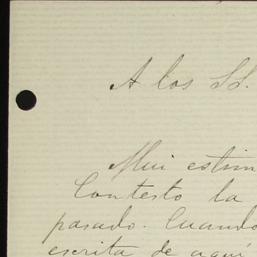 A los SS.
Mui estim
Contesto la
pasado. Cuando
escrita de aquí